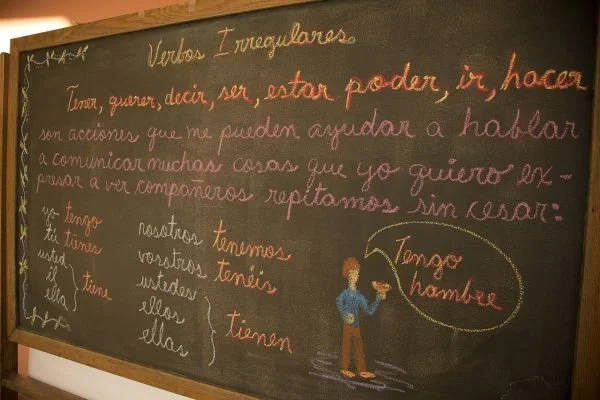 Verbos Irregulares
Tener, querer, decir, ser, estar poder, ir, hacer
son acciones que me pueden ayudar a hablar
a comunicar muchas cosas que yo quiero ex-
presar a ver compañeros repitamos sin cesar:
yo tengo
tú tienes
usted
él
ella
tiene
nosotros tenemos
vosotros tenéis
ustedes
ellos
ellas
tienen
Tengo
hambre